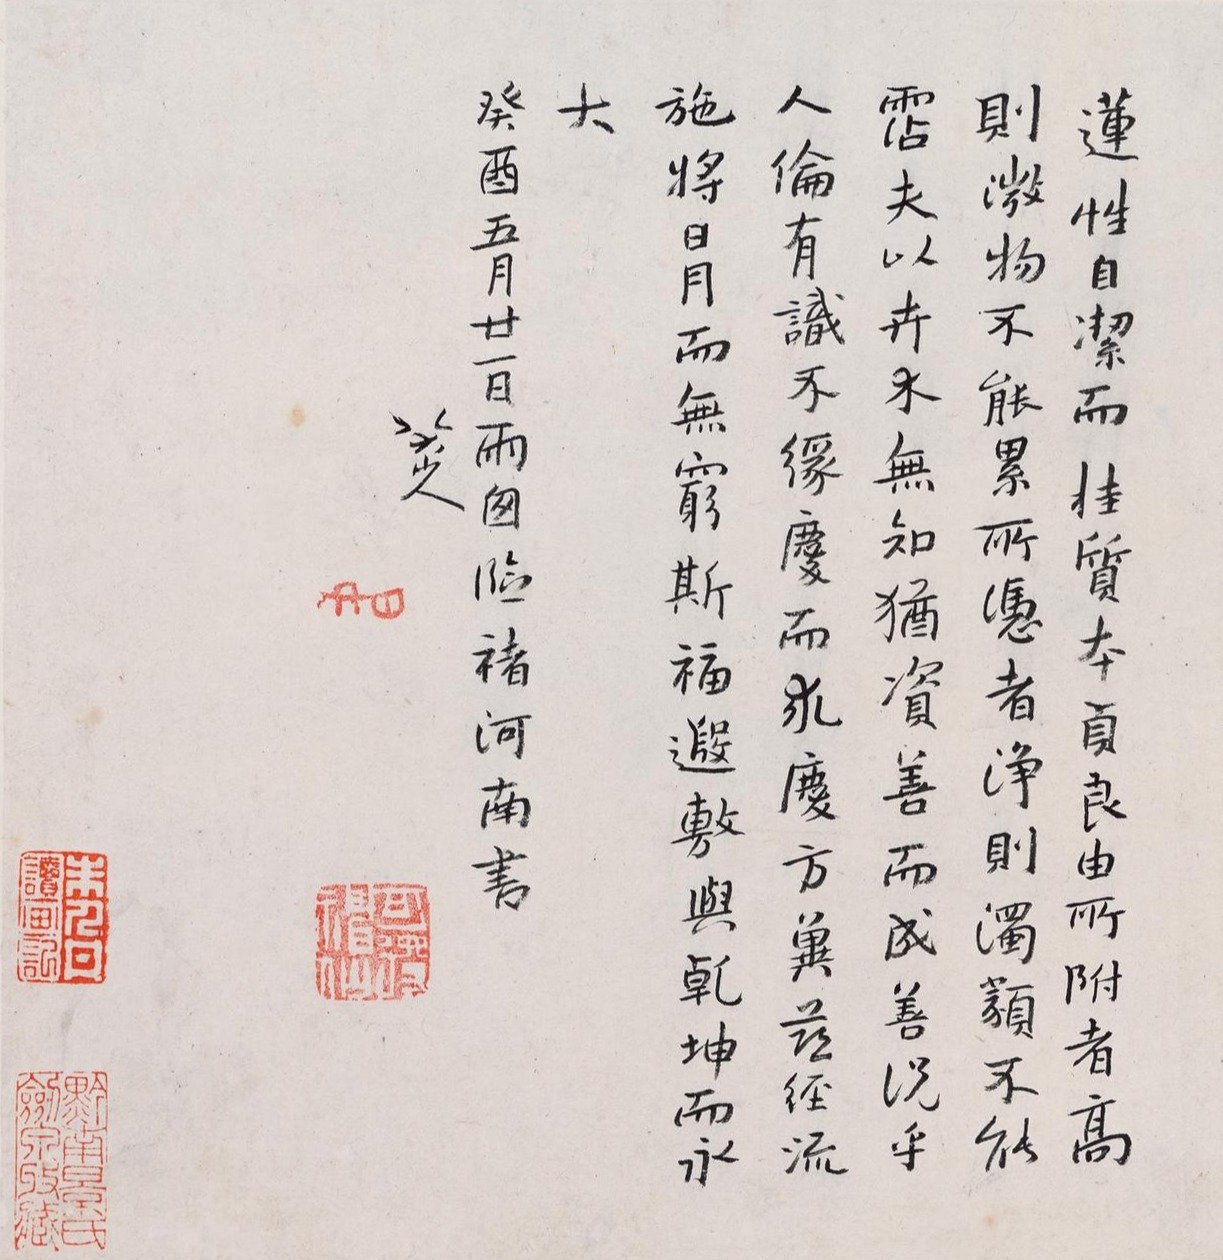 蓮性自潔而桂質本貞良由所附者高
則微物不能累所憑者淨則濁類不能
霑夫以卉木無知猶資善而成善況乎
人倫有識不緣慶而求慶方冀茲經流
施將日月而無窮斯福遐敷與乾坤而永
大
癸酉五月廿一日雨囱臨褚河南書
八大山人
可得神仙
朱九可讀画記
黔南景氏劍泉收藏